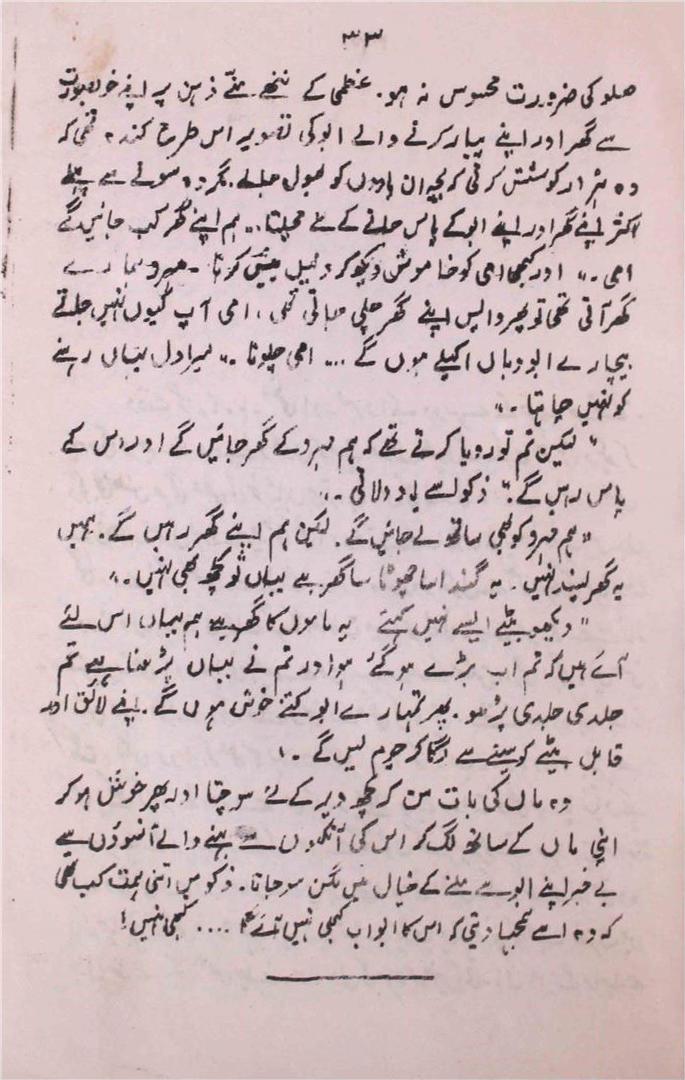 ۳۳
صلو کی ضرورت محسوس نہ ہو۔ عظمیٰ کے ننھے منے ذہن پر اپنے خوبصورت
سے گھر اور اپنے پیار کرنے والے ابو کی تصویر اس طرح کندہ تھی کہ
وہ ہزار کوشش کرتی کہ بچہ ان یادوں کو بھول جائے۔ مگر وہ سونے سے پہلے
اکثر اپنے گھر اور اپنے ابو کے پاس جانے کے لئے مچلتا،، ہم اپنے گھر کب جائیں گے
امی۔" اور کبھی امی کو خاموش دیکھ کر دلیل پیش کرتا ۔ مہرو ہمارے
گھر آتی تھی تو پھر واپس اپنے گھر چلی جاتی تھی، امی آپ کیوں نہیں جاتے
بیچارے ابو وہاں اکیلے ہوں گے ... امی چلو نا۔" میرا دل یہاں رہنے
کو نہیں چاہتا۔"
" لیکن تم تو رویا کرتے تھے کہ ہم مہرو کے گھر جائیں گے اور اس کے
پاس رہیں گے" ذکو اسے یاد دلاتی۔،
" ہم مہرو کو بھی ساتھ لے جائیں گے۔ لیکن ہم اپنے گھر رہیں گے۔ ہمیں
یہ گھر پسند نہیں۔ یہ گندا سا چھوٹا سا گھر ہے یہاں تو کچھ بھی نہیں۔"
" دیکھو بیٹے ایسے نہیں کہتے یہ ماموں کا گھر ہے ہم یہاں، اس لئے
آئے ہیں کہ تم اب بڑے ہو گئے ہو اور تم نے یہاں پڑھنا ہے تم
جلدی جلدی پڑھو۔ پھر تمہارے ابو کتنے خوش ہوں گے۔ اپنے لائق اور
قابل بیٹے کو سینے سے لگا کر چوم لیں گے۔،
وہ ماں کی بات سن کر کچھ دیر کے لئے سوچتا اور پھر خوش ہو کر
اپنی ماں کے ساتھ لگ کر اس کی آنکھوں سے بہنے والے آنسوؤں سے
بے خبر اپنے ابو سے ملنے کے خیال میں مگن سو جاتا۔ ذکو میں اتنی ہمت کب تھی
کہ وہ اسے سمجھا دیتی کہ اس کا ابو اب کبھی نہیں آئے گا .... کبھی نہیں!